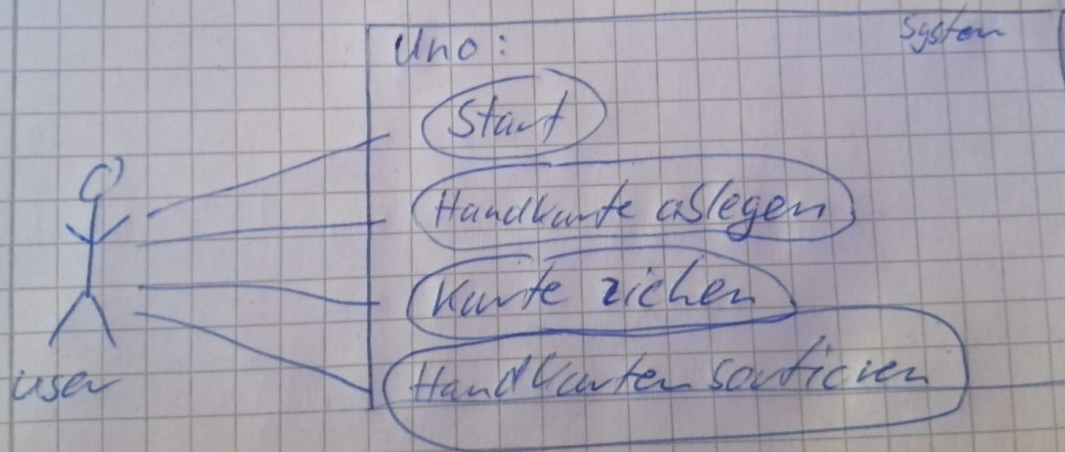 Uno: System
Start
Handkarte ablegen
Karte ziehen
Handkarten sortieren
user